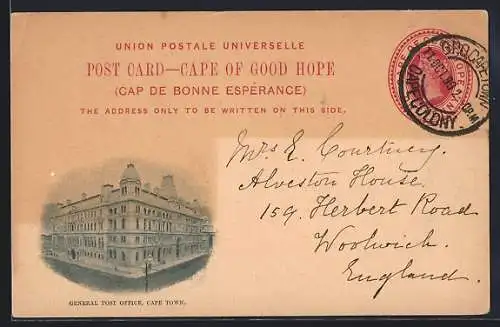 UNION POSTALE UNIVERSELLE
POST CARD—CAPE OF GOOD HOPE
(CAP DE BONNE ESPÉRANCE)
THE ADDRESS ONLY TO BE WRITTEN ON THIS SIDE.
G.P.O. CAPETOWN
CAPE COLONY
Mrs E. Courtney.
Alveston House.
159. Herbert Road
Woolwich.
England.
GENERAL POST OFFICE, CAPE TOWN.